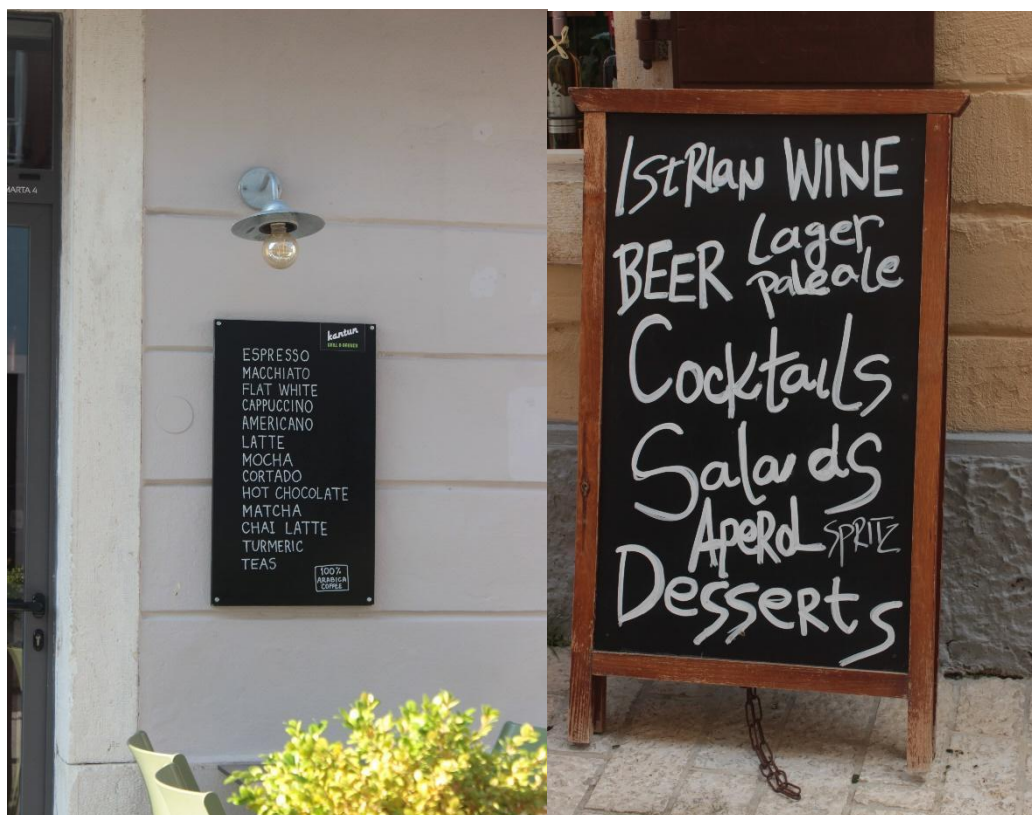 MARTA 4
kantun
GRILL & GARDEN
ESPRESSO
MACCHIATO
FLAT WHITE
CAPPUCCINO
AMERICANO
LATTE
MOCHA
CORTADO
HOT CHOCOLATE
MATCHA
CHAI LATTE
TURMERIC
TEAS
100%
ARABICA
COFFEE
IstRIan WINE
BEER Lager
pale ale
Cocktails
Salads
ApeRoL SPRITZ
Desserts